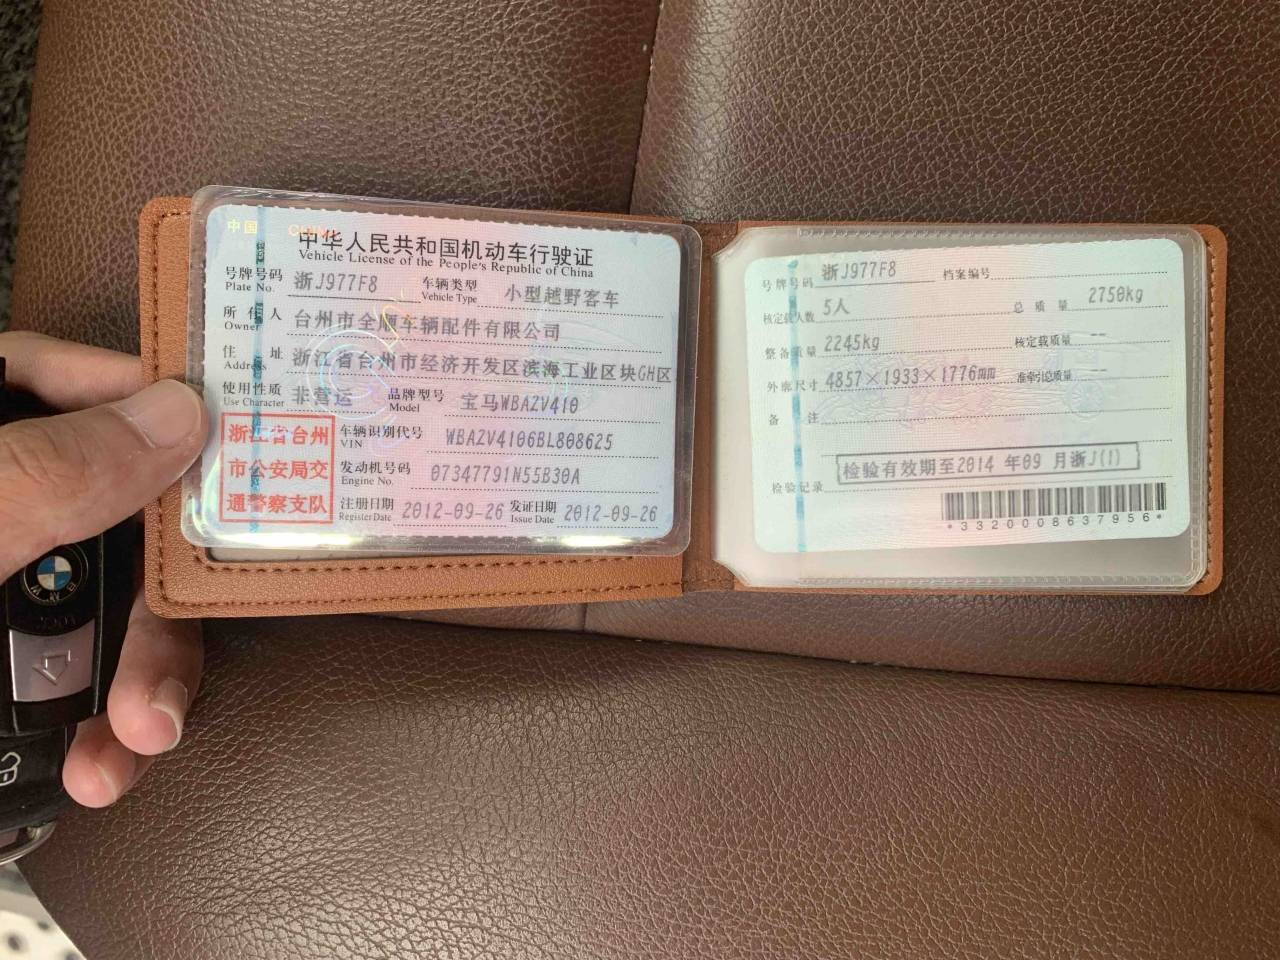 中国 CHINA
中华人民共和国机动车行驶证
Vehicle License of the People's Republic of China
号牌号码 浙J977F8 车辆类型 小型越野客车
Plate No. Vehicle Type
所有人 台州市全顺车辆配件有限公司
Owner
住址 浙江省台州市经济开发区滨海工业区块GH区
Address
使用性质 非营运 品牌型号 宝马WBAZV410
Use Character Model
浙江省台州
市公安局交
通警察支队
车辆识别代号 WBAZV4106BL808625
VIN
发动机号码 07347791N55B30A
Engine No.
注册日期 2012-09-26 发证日期 2012-09-26
Register Date Issue Date
号牌号码 浙J977F8 档案编号
核定载人数 5人 总质量 2750kg
整备质量 2245kg 核定载质量 --
外廓尺寸 4857×1933×1776mm 准牵引总质量 --
备注
检验记录 检验有效期至2014 年09 月浙J(1)
*3320008637956*
BMW